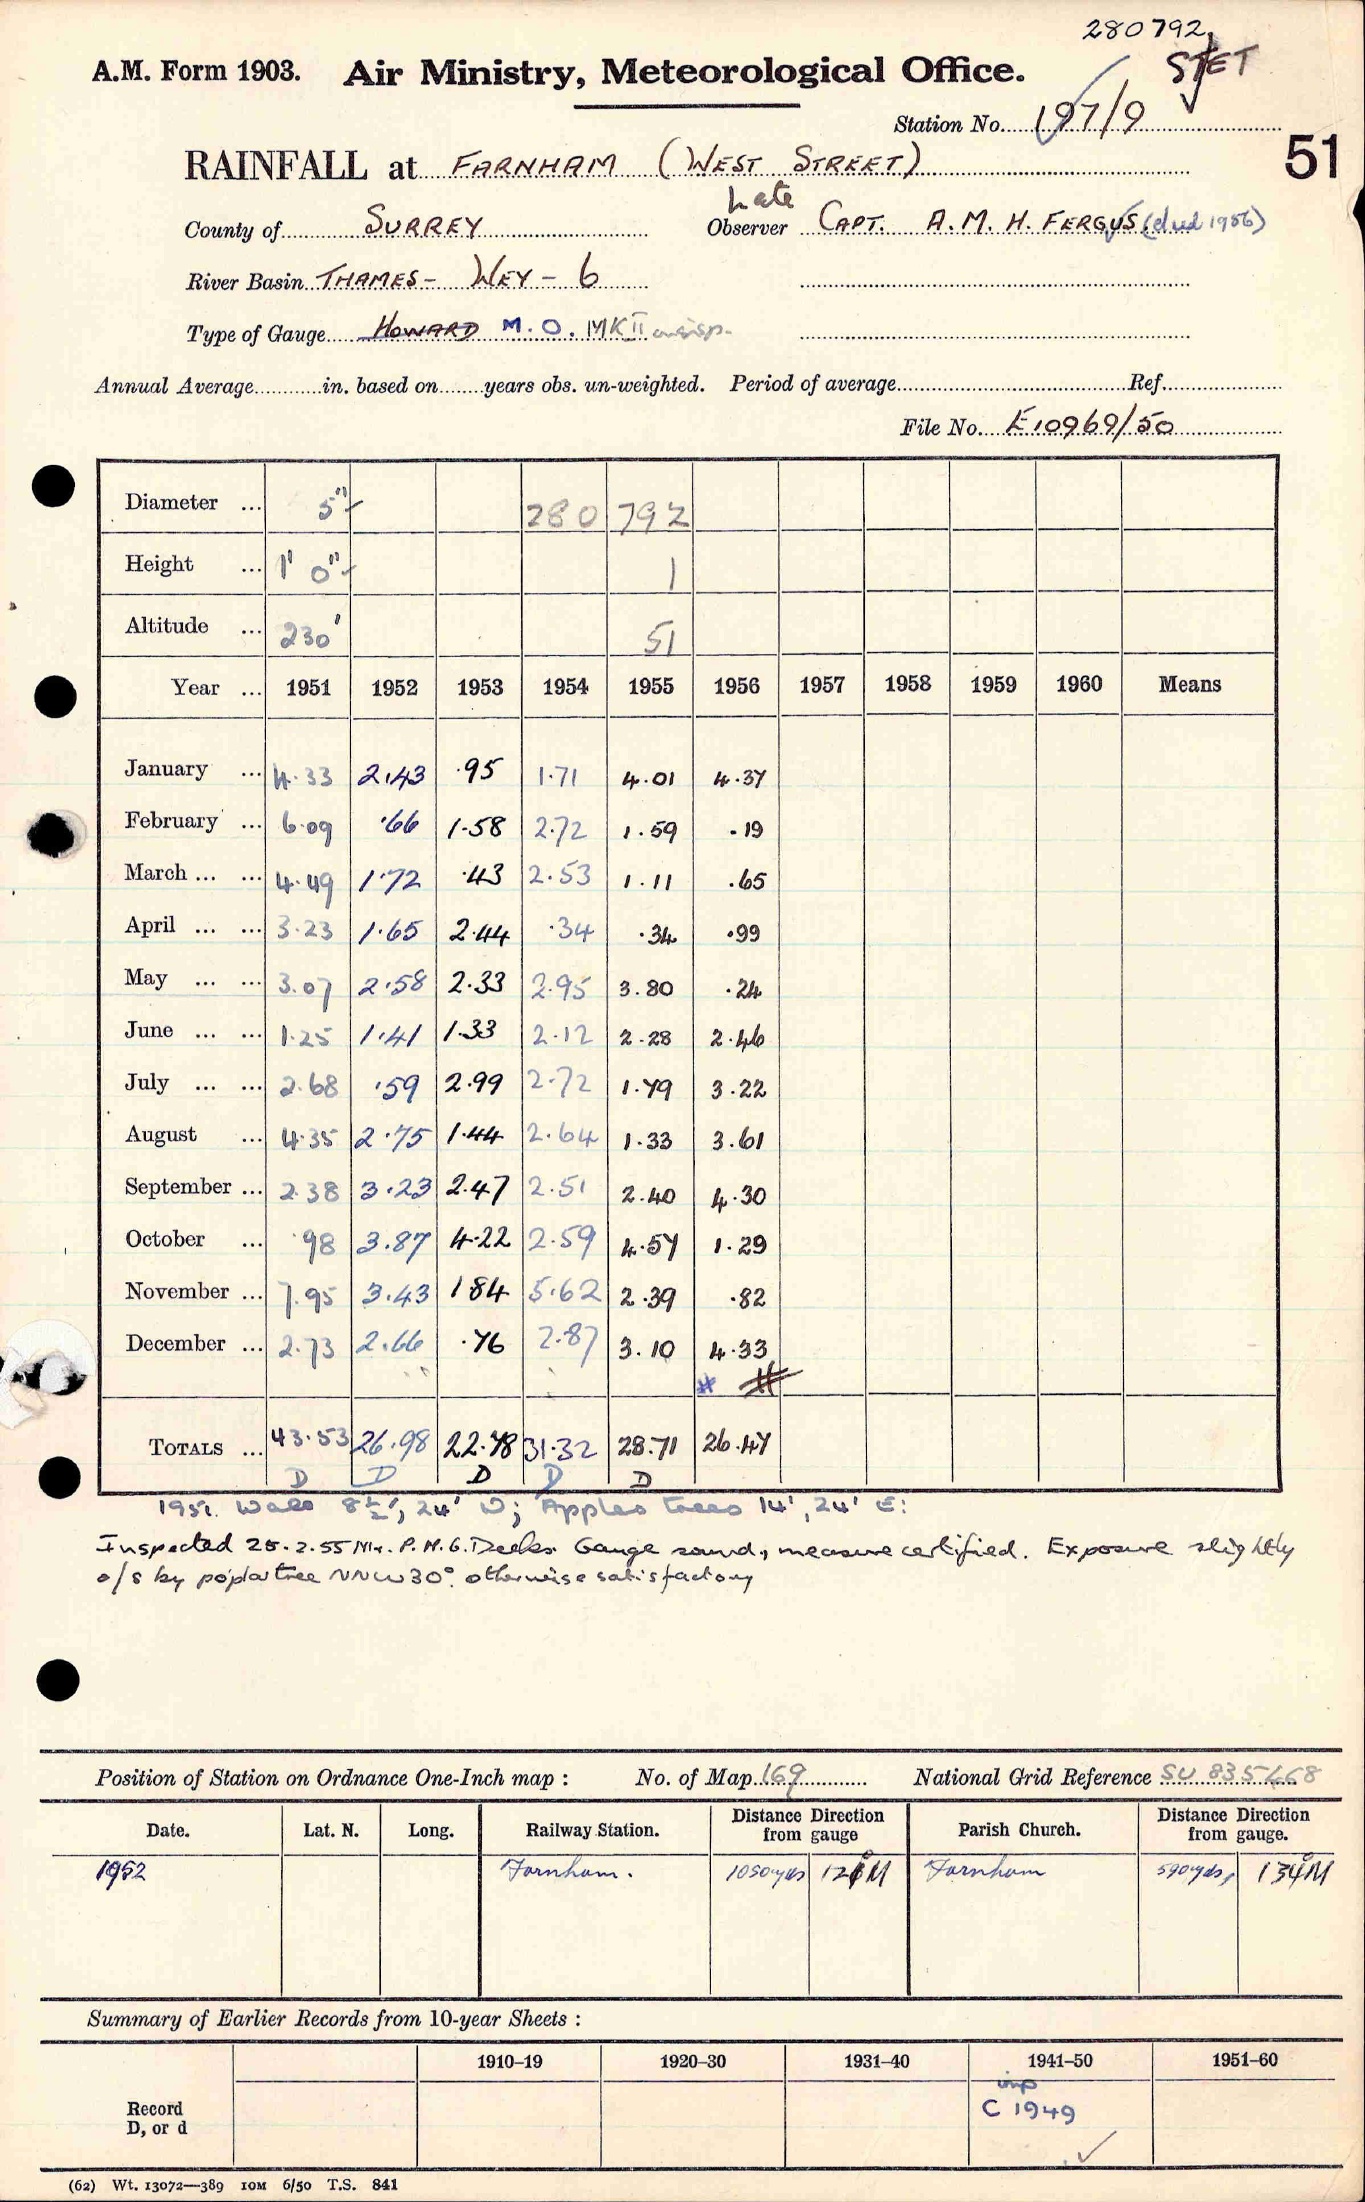 280792
STET
A.M. Form 1903. Air Ministry, Meteorological Office.
Station No. 197/9
51
RAINFALL at FARNHAM (WEST STREET)
Late
County of SURREY Observer CAPT. A.M.H. FERGUS (died 1956)
River Basin THAMES - WEY - 6
Type of Gauge HOWARD M.O. MKII
Annual Average in. based on years obs. un-weighted. Period of average Ref.
File No. E10969/50
Diameter ... 5" 280 792
Height ... 1' 0" 1
Altitude ... 230' 51
Year ... 1951 1952 1953 1954 1955 1956 1957 1958 1959 1960 Means
January ... 4.33 2.43 .95 1.71 4.01 4.37
February ... 6.09 .66 1.58 2.72 1.59 .19
March ... ... 4.49 1.72 .43 2.53 1.11 .65
April ... ... 3.23 1.65 2.44 .34 .34 .99
May ... ... 3.07 2.58 2.33 2.95 3.80 .24
June ... ... 1.25 1.41 1.33 2.12 2.28 2.46
July ... ... 2.68 .59 2.99 2.72 1.79 3.22
August ... 4.35 2.75 1.44 2.64 1.33 3.61
September ... 2.38 3.23 2.47 2.51 2.40 4.30
October ... .98 3.87 4.22 2.59 4.57 1.29
November ... 7.95 3.43 1.84 5.62 2.39 .82
December ... 2.73 2.66 .76 2.87 3.10 4.33
# #
TOTALS ... 43.53 26.98 22.78 31.32 28.71 26.47
D D D D D
1951. Wall 8½', 24' W; Apples trees 14', 24' E:
Inspected 25.2.55 Mr. P.M.G. Deeks. Gauge sound, measure certified. Exposure slightly
o/s by poplar tree NNW 30°. otherwise satisfactory
Position of Station on Ordnance One-Inch map : No. of Map 169 National Grid Reference SU 835468
Date. Lat. N. Long. Railway Station. Distance Direction from gauge Parish Church. Distance Direction from gauge.
1952 Farnham. 1050yds 126°M Farnham 590yds, 134°M
Summary of Earlier Records from 10-year Sheets :
1910–19 1920–30 1931–40 1941–50 1951–60
imp
Record
D, or d
C 1949
(62) Wt. 13072—389 10M 6/50 T.S. 841